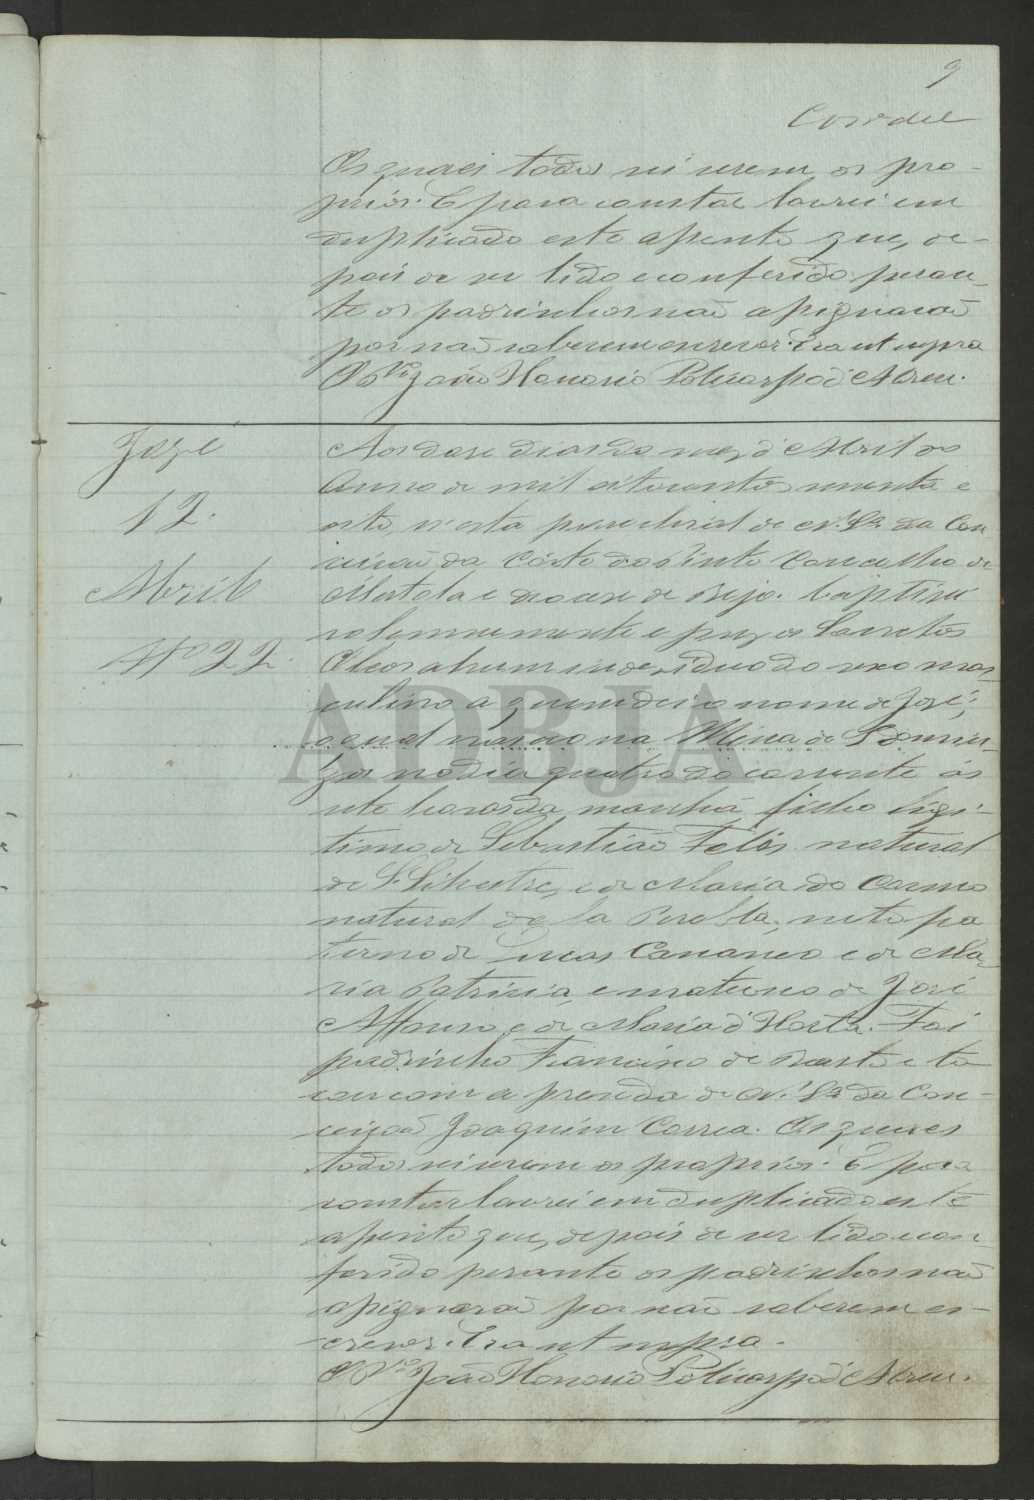 9
Os quaes todos sei serem os pro-
prios. E para constar lavrei em
duplicado este assento que, de-
pois de ser lido e conferido peran-
te os padrinhos não assignarão
por não saberem escrever. Era ut supra
O Pr.º João Honorio Policarpo d'Abreu.
José
12.
Abril
Nº 22.
Aos doze dias do mez d'Abril do
Anno de mil oitocentos noventa e
oito, n'esta parochial de N. Sª da Con
ceição da Côrte do Pinto Concelho de
Mertola e Diocese de Beja. baptisei
solemnemente e puz os Sanctos
Oleos a hum individuo do sexo mas-
culino a quem dei o nome de José;
o qual nasceo na Mina de S. Domin-
gos no dia quatro do corrente ás
sete horas da manhã filho legi-
timo de Sebastião Felis natural
de S. Silvestre, e de Maria do Carmo
natural de la Puebla, neto pa
terno de Lucas Cananeo e de Ma-
ria Patricia, e materno de José
Affonso, e de Maria d'Horta. Foi
padrinho Francisco de Basto e to
cou com a prenda de N. Sª da Con-
ceição Joaquim Correa. Os quaes
todos sei serem os proprios. E para
constar lavrei em duplicado este
assento que, depois de ser lido e con-
ferido perante os padrinhos não
assignarão por não saberem es-
crever. Era ut supra.
O Pr.º João Honorio Policarpo d'Abreu.
ADBJA